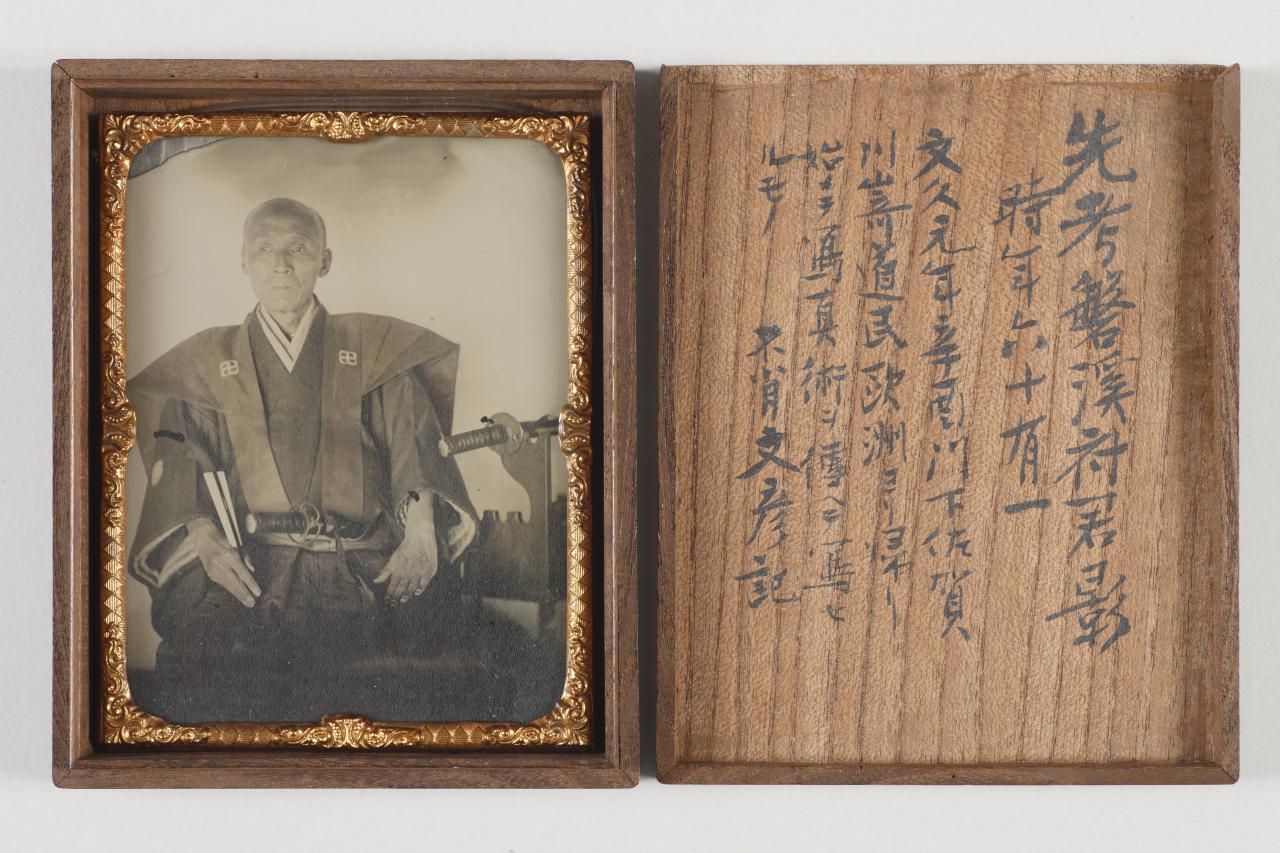 先考磐溪府君影
時年六十有一
文久元年辛酉門下佐賀
川嵜道民欧洲ヨリ帰リ
始テ寫真術ヲ傳ヘ寫セ
ルモノ　不肖文彦記